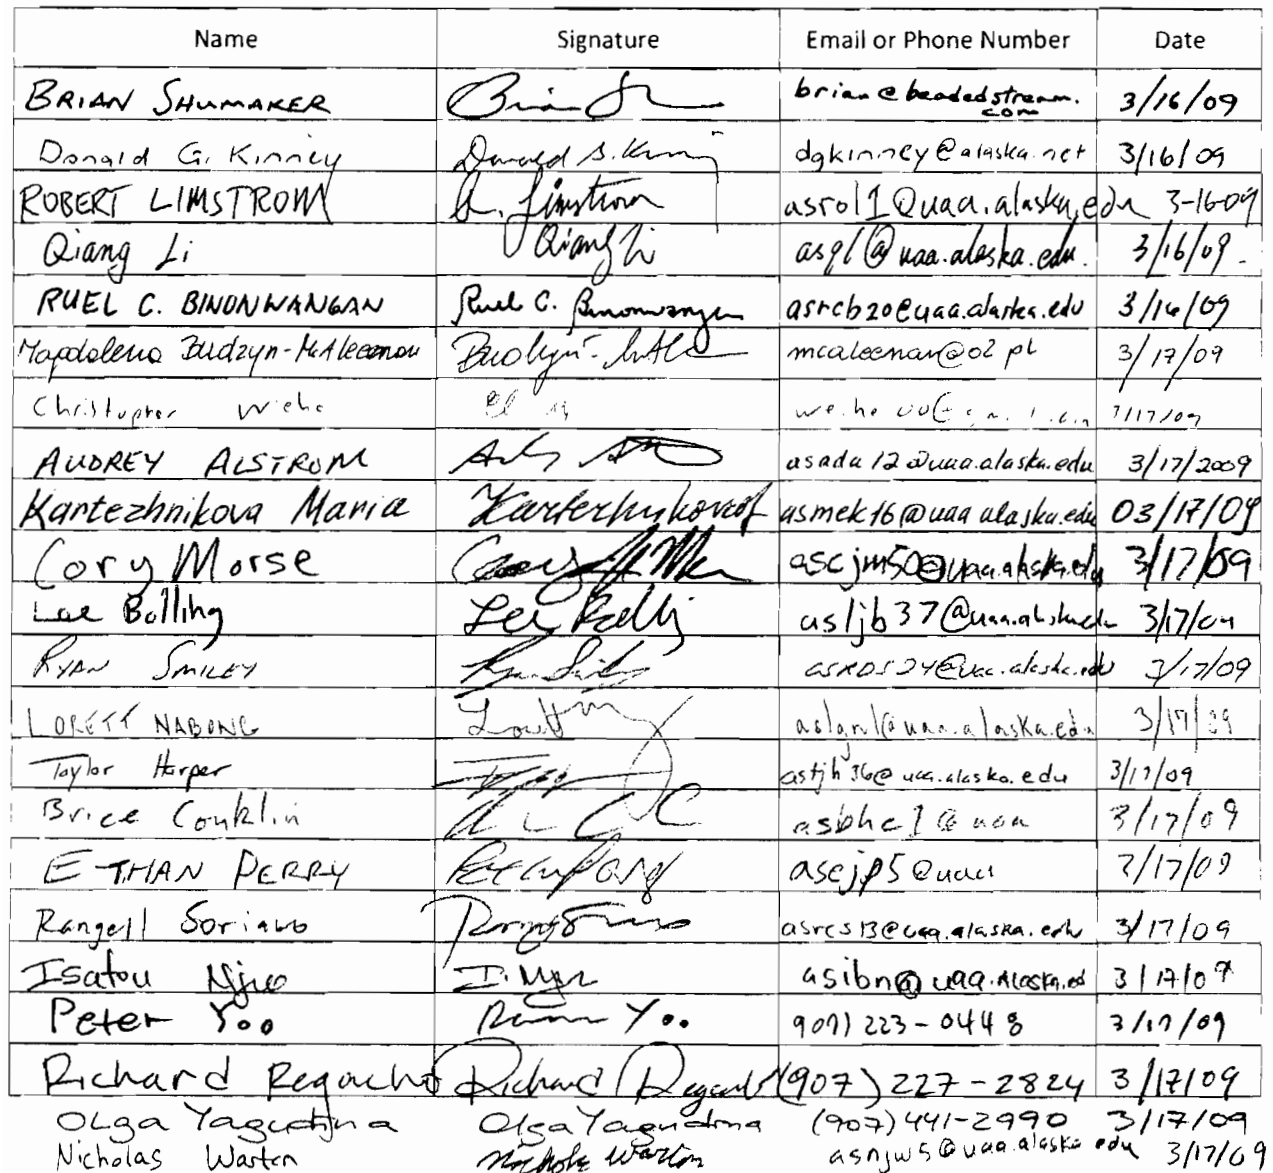 Name Signature Email or Phone Number Date
BRIAN SHUMAKER brian@beadedstream.com 3/16/09
Donald G. Kinney Donald G. Kinney dgkinney@alaska.net 3/16/09
ROBERT LIMSTROM R. Limstrom asrol1@uaa.alaska.edu 3-16-09
Qiang Li Qiang Li asql@uaa.alaska.edu. 3/16/09.
RUEL C. BINONWANGAN Ruel C. Binonwangan asrcb20@uaa.alaska.edu 3/16/09
Magdalena Budzyn-McAleenan mcaleenan@o2.pl 3/17/09
Christopher Wiehe 3/17/09
AUDREY ALSTROM asada12@uaa.alaska.edu 3/17/2009
Kartezhnikova Maria asmek16@uaa.alaska.edu 03/17/09
Cory Morse ascjm50@uaa.alaska.edu 3/17/09
Lee Bolling Lee Bolling asljb37@uaa.alaska.edu 3/17/09
RYAN SMILEY 3/17/09
LORETT NABONG 3/17/09
Taylor Harper astjh36@uaa.alaska.edu 3/17/09
Brice Conklin asbhc1@uaa 3/17/09
ETHAN PERRY asejp5@uaa 3/17/09
Rangell Soriano asrcs13@uaa.alaska.edu 3/17/09
Isatou Njie asibn@uaa.Alaska.ed 3/17/09
Peter Yoo Yoo 907) 223-0448 3/17/09
Richard Regacho Richard Regacho (907) 227-2824 3/17/09
Olga Yagudina Olga Yagudina (907) 441-2990 3/17/09
Nicholas Warten Nichols Warten asnjw5@uaa.alaska.edu 3/17/09